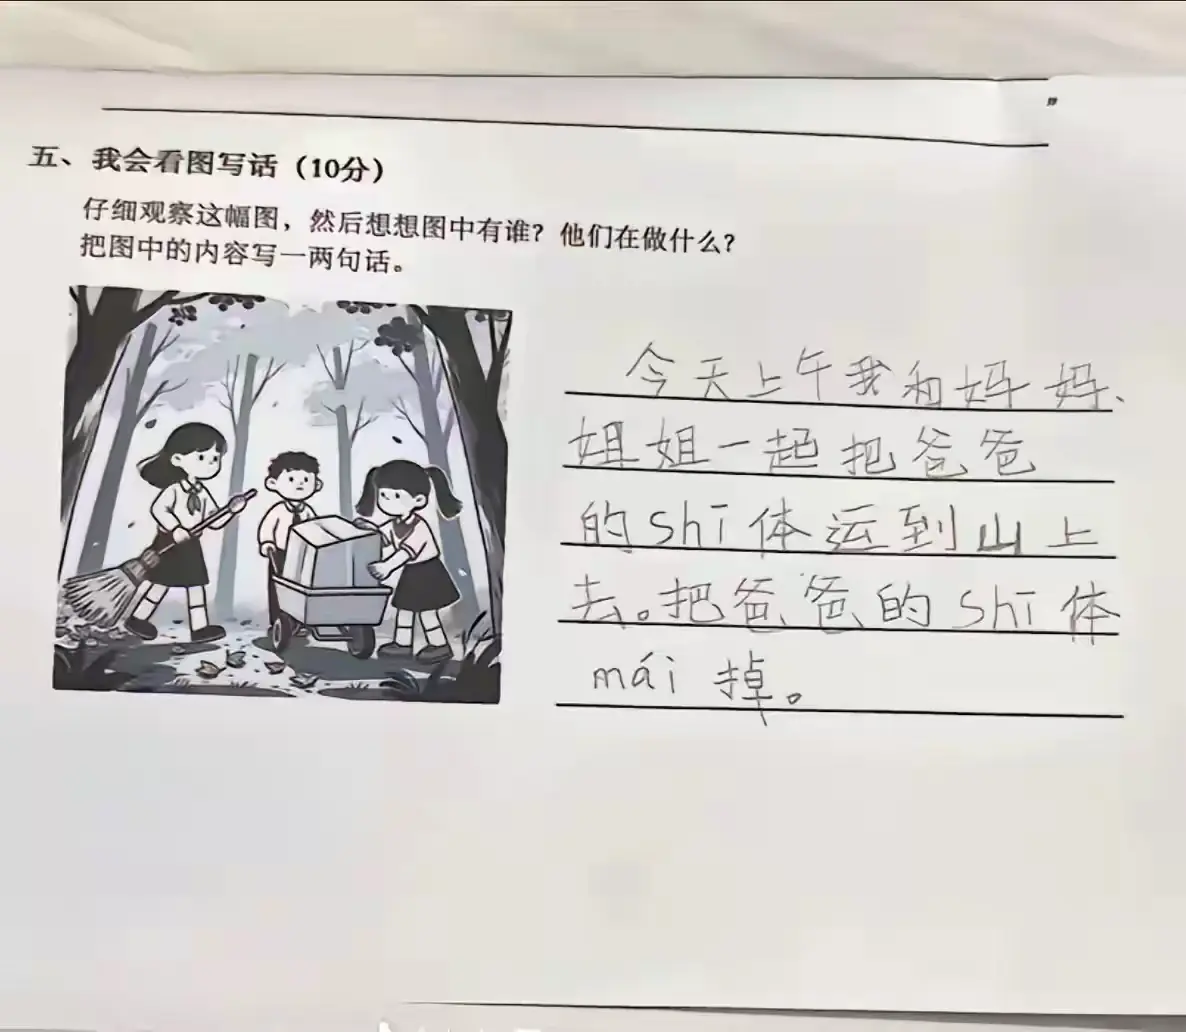 ”
五、我会看图写话（10分）
仔细观察这幅图，然后想想图中有谁？他们在做什么？
把图中的内容写一两句话。
今天上午我和妈妈、
姐姐一起把爸爸
的shī体运到山上
去。把爸爸的shī体
mái掉。